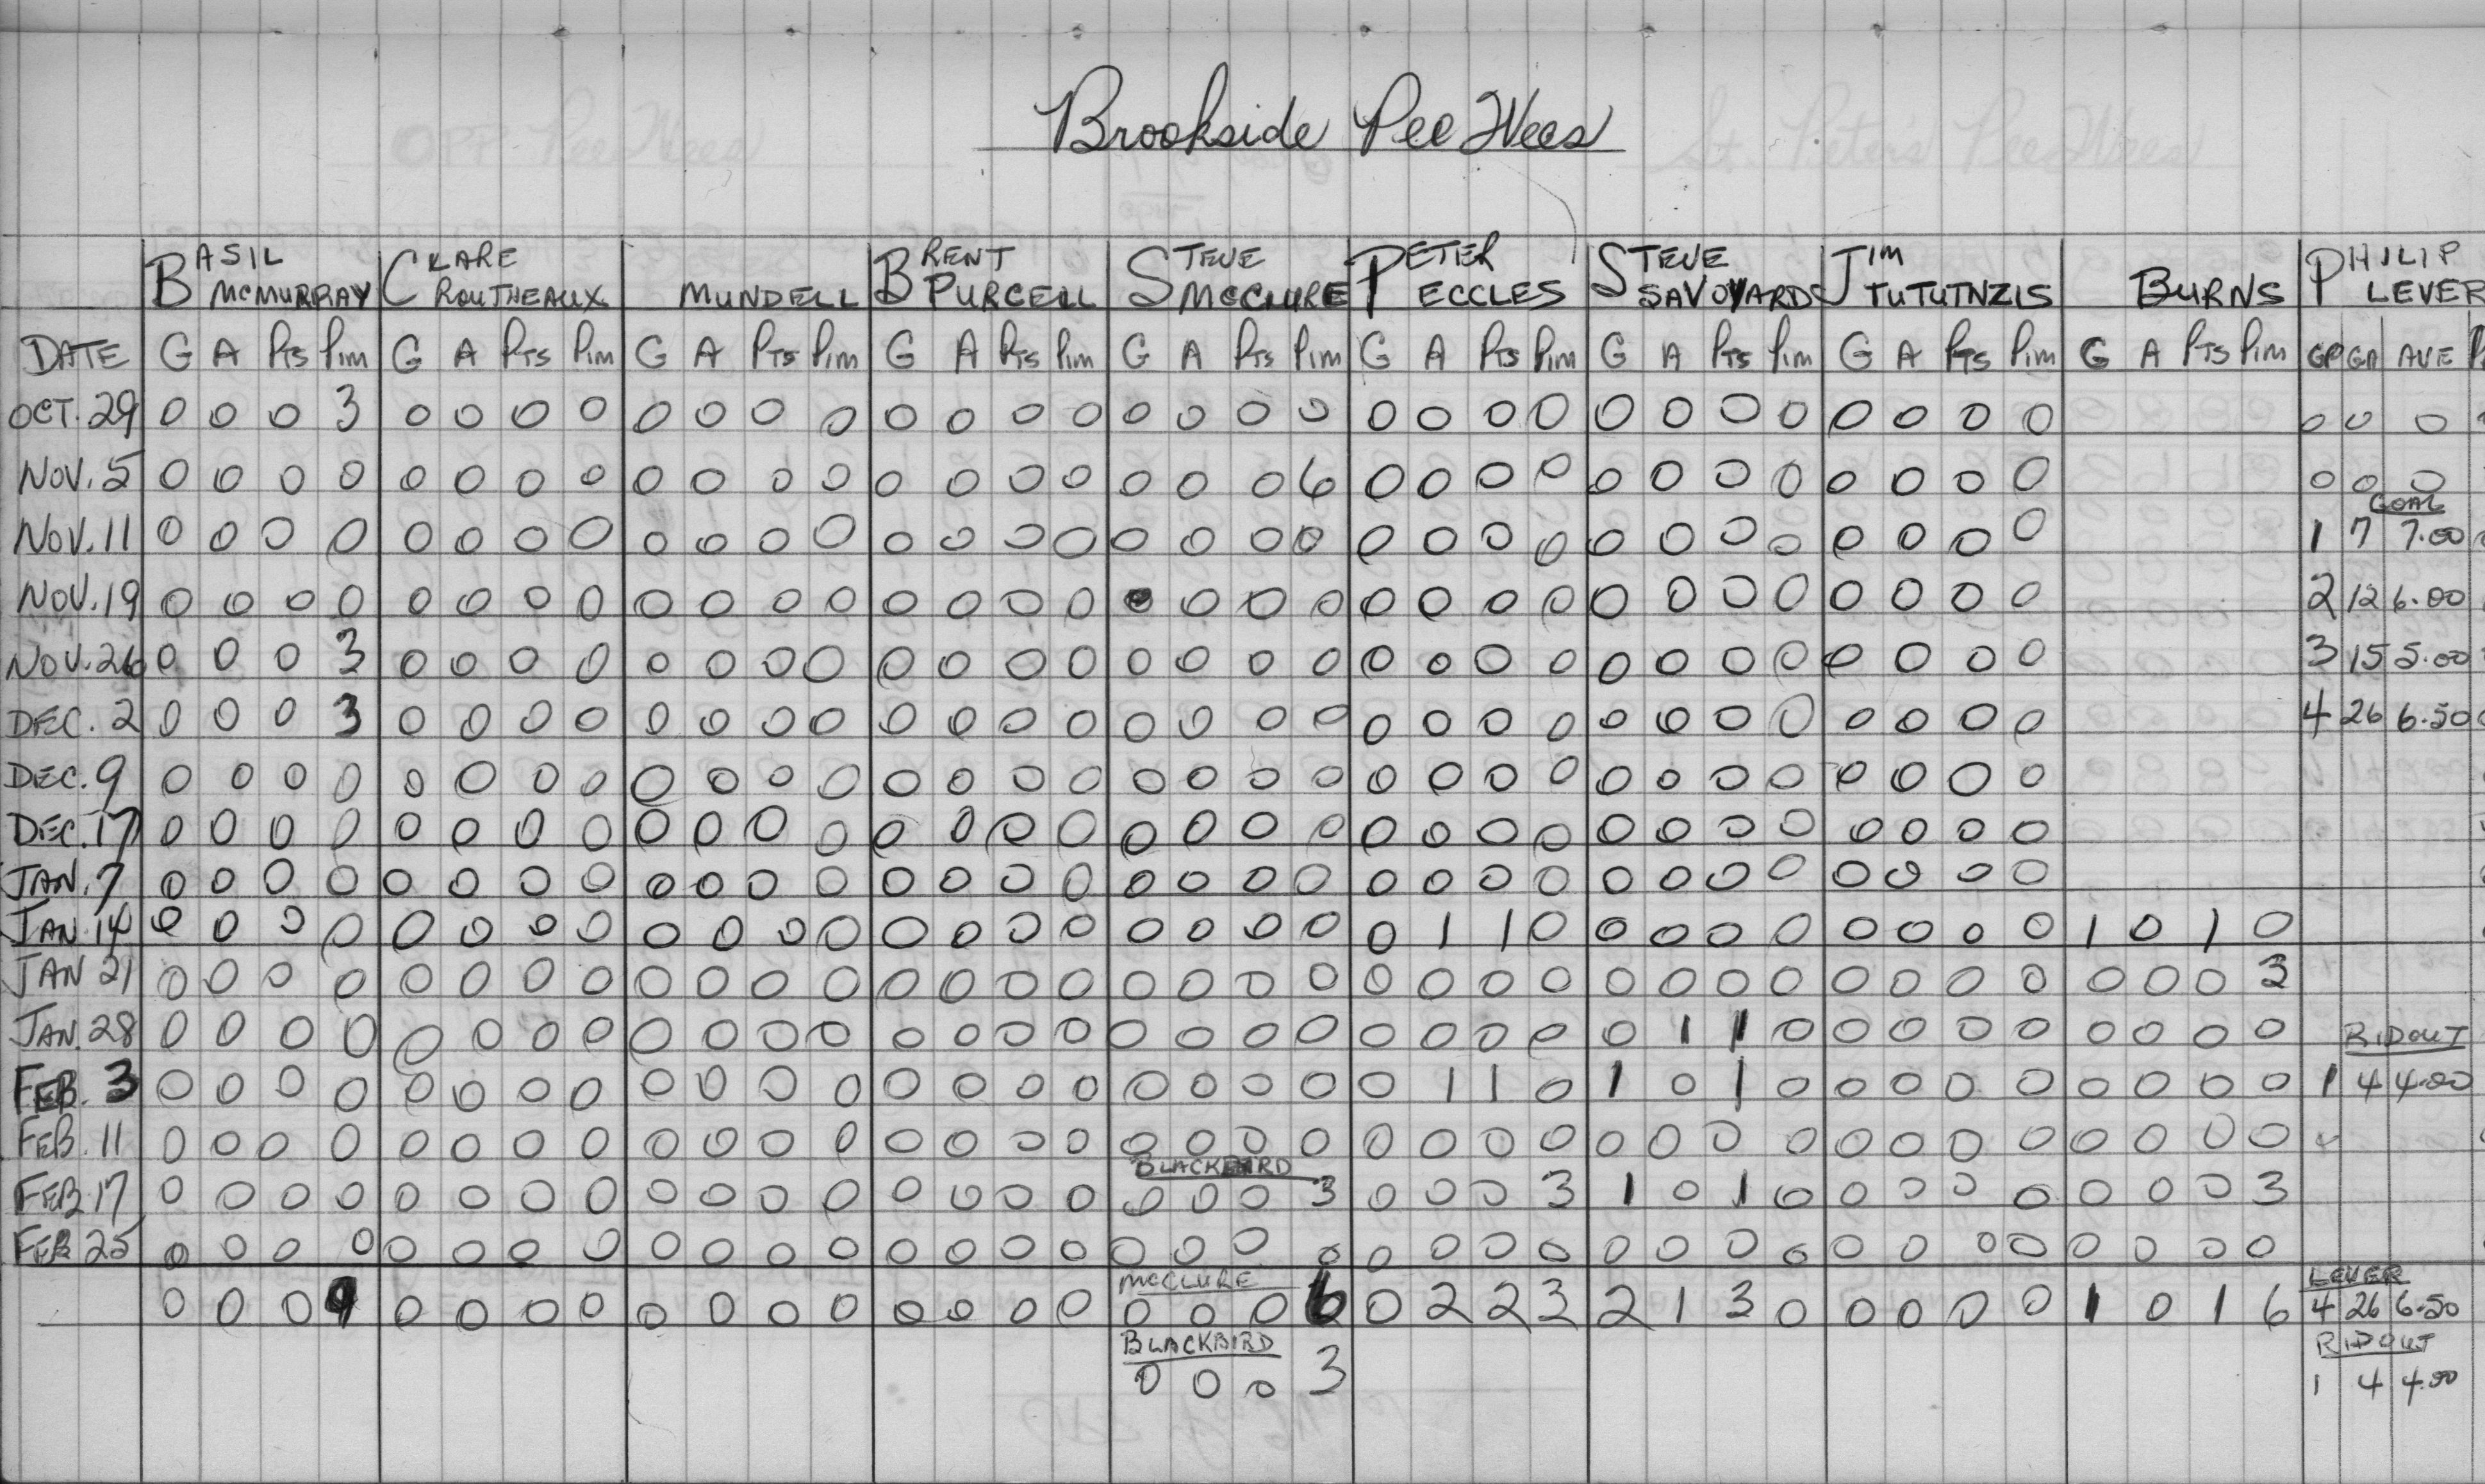 Brookside Pee Wees
BASIL CLARE BRENT STEVE PETER STEVE JIM PHILIP
MCMURRAY ROUTHEAUX MUNDELL PURCELL MCCLURE ECCLES SAVOYARDS TUTUTNZIS BURNS LEVER
DATE G A PTS PIM G A PTS PIM G A PTS PIM G A PTS PIM G A PTS PIM G A PTS PIM G A PTS PIM G A PTS PIM G A PTS PIM GP GA AVE
OCT. 29 0 0 0 3 0 0 0 0 0 0 0 0 0 0 0 0 0 0 0 0 0 0 0 0 0 0 0 0 0 0 0 0 0 0 0
NOV. 5 0 0 0 0 0 0 0 0 0 0 0 0 0 0 0 0 0 0 0 6 0 0 0 0 0 0 0 0 0 0 0 0 0 0 0
GOAL
NOV. 11 0 0 0 0 0 0 0 0 0 0 0 0 0 0 0 0 0 0 0 0 0 0 0 0 0 0 0 0 0 0 0 0 1 7 7.00
NOV. 19 0 0 0 0 0 0 0 0 0 0 0 0 0 0 0 0 0 0 0 0 0 0 0 0 0 0 0 0 0 0 0 0 2 12 6.00
NOV. 26 0 0 0 3 0 0 0 0 0 0 0 0 0 0 0 0 0 0 0 0 0 0 0 0 0 0 0 0 0 0 0 0 3 15 5.00
DEC. 2 0 0 0 3 0 0 0 0 0 0 0 0 0 0 0 0 0 0 0 0 0 0 0 0 0 0 0 0 0 0 0 0 4 26 6.50
DEC. 9 0 0 0 0 0 0 0 0 0 0 0 0 0 0 0 0 0 0 0 0 0 0 0 0 0 0 0 0 0 0 0 0
DEC. 17 0 0 0 0 0 0 0 0 0 0 0 0 0 0 0 0 0 0 0 0 0 0 0 0 0 0 0 0 0 0 0 0
JAN. 7 0 0 0 0 0 0 0 0 0 0 0 0 0 0 0 0 0 0 0 0 0 0 0 0 0 0 0 0 0 0 0 0
JAN. 14 0 0 0 0 0 0 0 0 0 0 0 0 0 0 0 0 0 0 0 0 0 1 1 0 0 0 0 0 0 0 0 0 1 0 1 0
JAN 21 0 0 0 0 0 0 0 0 0 0 0 0 0 0 0 0 0 0 0 0 0 0 0 0 0 0 0 0 0 0 0 0 0 0 0 3
JAN. 28 0 0 0 0 0 0 0 0 0 0 0 0 0 0 0 0 0 0 0 0 0 0 0 0 0 1 1 0 0 0 0 0 0 0 0 0 RIDOUT
FEB. 3 0 0 0 0 0 0 0 0 0 0 0 0 0 0 0 0 0 0 0 0 0 1 1 0 1 0 1 0 0 0 0 0 0 0 0 0 1 4 4.00
FEB. 11 0 0 0 0 0 0 0 0 0 0 0 0 0 0 0 0 0 0 0 0 0 0 0 0 0 0 0 0 0 0 0 0 0 0 0 0
BLACKBIRD
FEB. 17 0 0 0 0 0 0 0 0 0 0 0 0 0 0 0 0 0 0 0 3 0 0 0 3 1 0 1 0 0 0 0 0 0 0 0 3
FEB 25 0 0 0 0 0 0 0 0 0 0 0 0 0 0 0 0 0 0 0 0 0 0 0 0 0 0 0 0 0 0 0 0 0 0 0 0
MCCLURE LEVER
0 0 0 9 0 0 0 0 0 0 0 0 0 0 0 0 0 0 0 6 0 2 2 3 2 1 3 0 0 0 0 0 1 0 1 6 4 26 6.50
BLACKBIRD RIDOUT
0 0 0 3 1 4 4.00